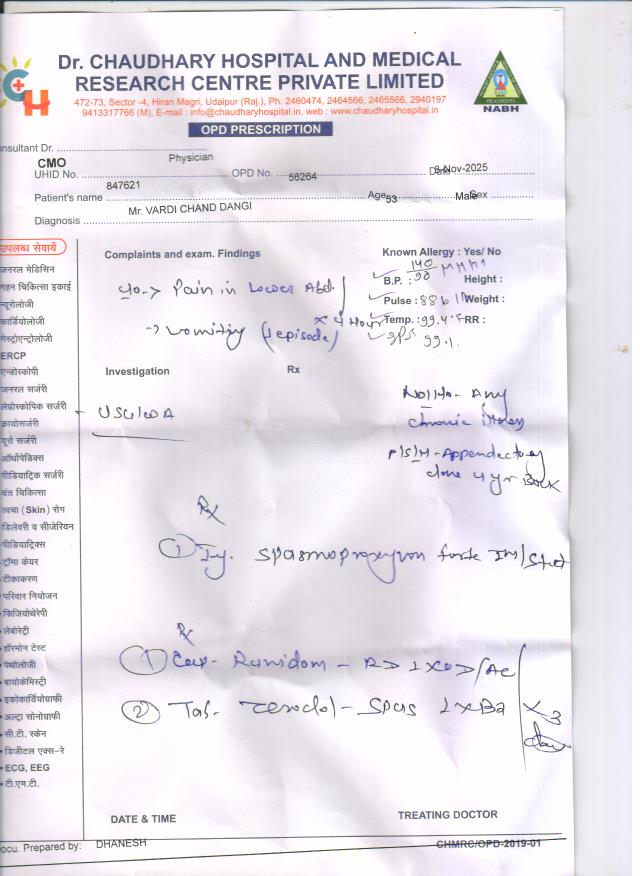 Dr. CHAUDHARY HOSPITAL AND MEDICAL
RESEARCH CENTRE PRIVATE LIMITED
472-73, Sector -4, Hiran Magri, Udaipur (Raj.), Ph. 2460474, 2464566, 2465566, 2940197
9413317766 (M), E-mail : info@chaudharyhospital.in, web : www.chaudharyhospital.in
NABH
OPD PRESCRIPTION
onsultant Dr.
CMO Physician
UHID No. 847621 OPD No. 56264 -Nov-2025
Patient's name Mr. VARDI CHAND DANGI Age 53 Male Sex
Diagnosis
उपलब्ध सेवायें
जनरल मेडिसिन
गहन चिकित्सा इकाई
न्यूरोलॉजी
कार्डियोलॉजी
गैस्ट्रोएन्ट्रोलॉजी
ERCP
एन्डोस्कोपी
जनरल सर्जरी
लेप्रोस्कोपिक सर्जरी
क्रायोसर्जरी
यूरो सर्जरी
ऑर्थोपेडिक्स
पीडियाट्रिक सर्जरी
दंत चिकित्सा
त्वचा (Skin) रोग
डिलेवरी व सीजेरियन
पीडियाट्रिक्स
ट्रॉमा केयर
टीकाकरण
परिवार नियोजन
फिजियोथेरेपी
लेबोरेट्री
हॉरमोन टेस्ट
पेथोलॉजी
बायोकेमिस्ट्री
इकोकार्डियोग्राफी
अल्ट्रा सोनोग्राफी
सी.टी. स्केन
डिजीटल एक्स-रे
ECG, EEG
टी.एम.टी.
Complaints and exam. Findings
Known Allergy : Yes/ No
B.P. : 140/90 Height :
Pulse : 88 Weight :
Temp. : 99.4°F RR :
99%
Pain in Lower Abd.
vomiting (1 episode)
x 4 Hour
Investigation Rx
USG/WA
No/H/o - Any
chronic illness
P/S/H - Appendectomy
done 4 yr Back
Rx
1 Inj. Spasmoproxyvon forte IM/Stat
Rx
1 Cap. Ranidom - RD 1XOD/AC
2 Tab. Zerodol - Spas 1XBD
X 3 day
DATE & TIME TREATING DOCTOR
ocu. Prepared by: DHANESH CHMRC/OPD-2019-01